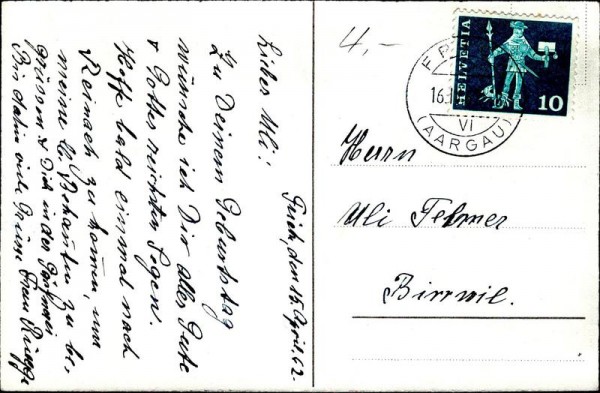 Frick, den 15. April 62.
Liebes Uli!
Zu Deinem Geburtstag
wünsche ich Dir alles Gute
& Gottes reichsten Segen.
Hoffe bald einmal nach
Reinach zu kommen, um
meine lb. Bekannten zu be-
grüssen & Dich in der
Bis dahin viele Grüsse Frau
4,-
HELVETIA
10
16.
VI
(AARGAU)
Herrn
Uli
Birrwil.